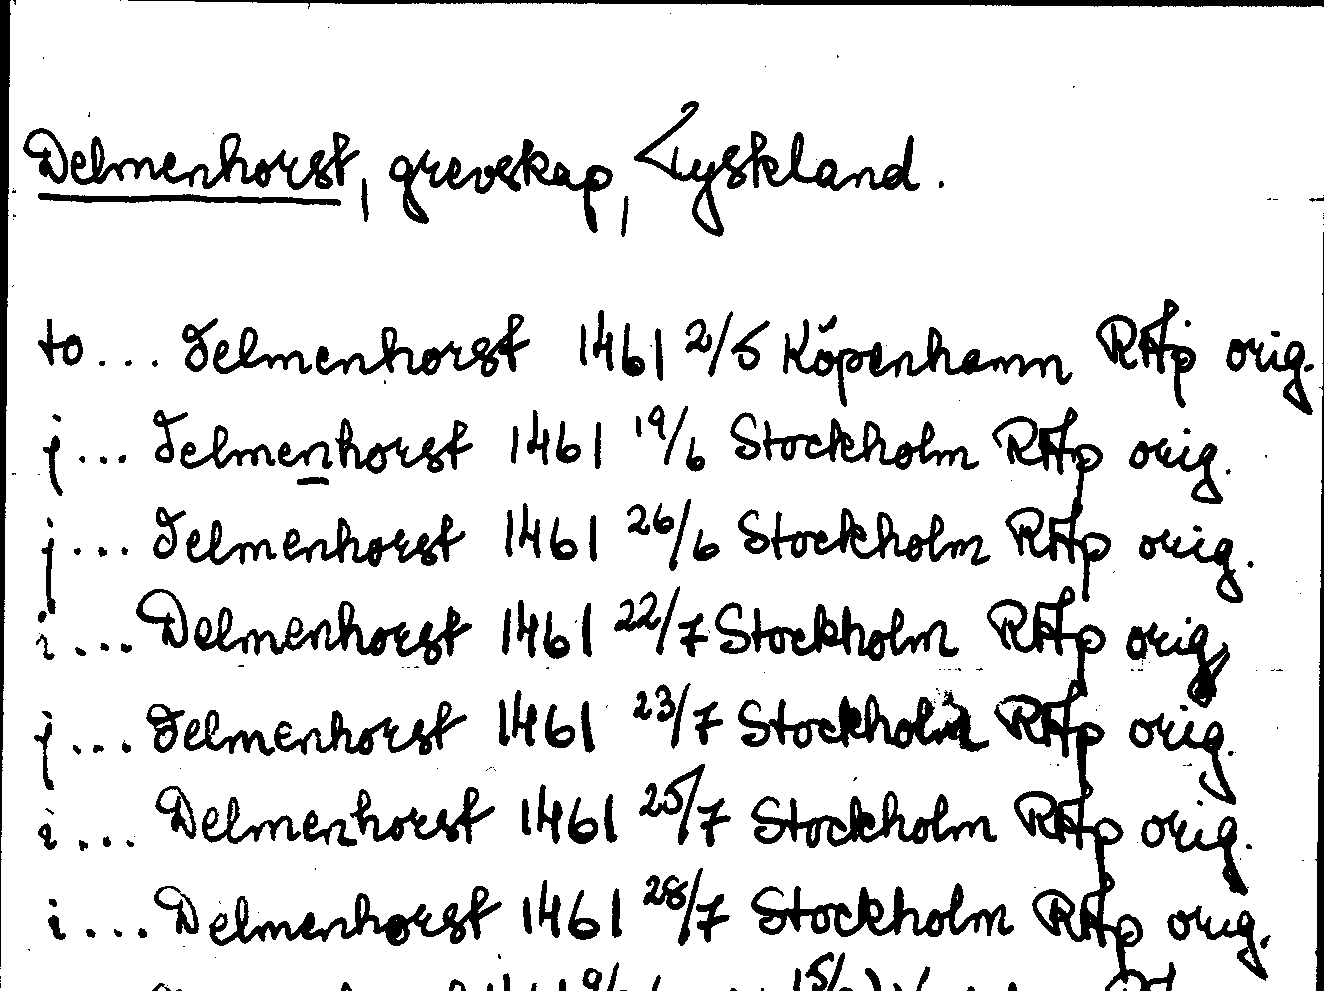 Delmenhorst, grevskap, Tyskland.
to... Delmenhorst 1461 2/5 Köpenhamn RAp orig.
j... Delmenhorst 1461 19/6 Stockholm RAp orig.
j... Delmenhorst 1461 26/6 Stockholm RAp orig.
i... Delmenhorst 1461 22/7 Stockholm RAp orig.
j... Delmenhorst 1461 23/7 Stockholm RAp orig.
i... Delmenhorst 1461 25/7 Stockholm RAp orig.
i... Delmenhorst 1461 28/7 Stockholm RAp orig.